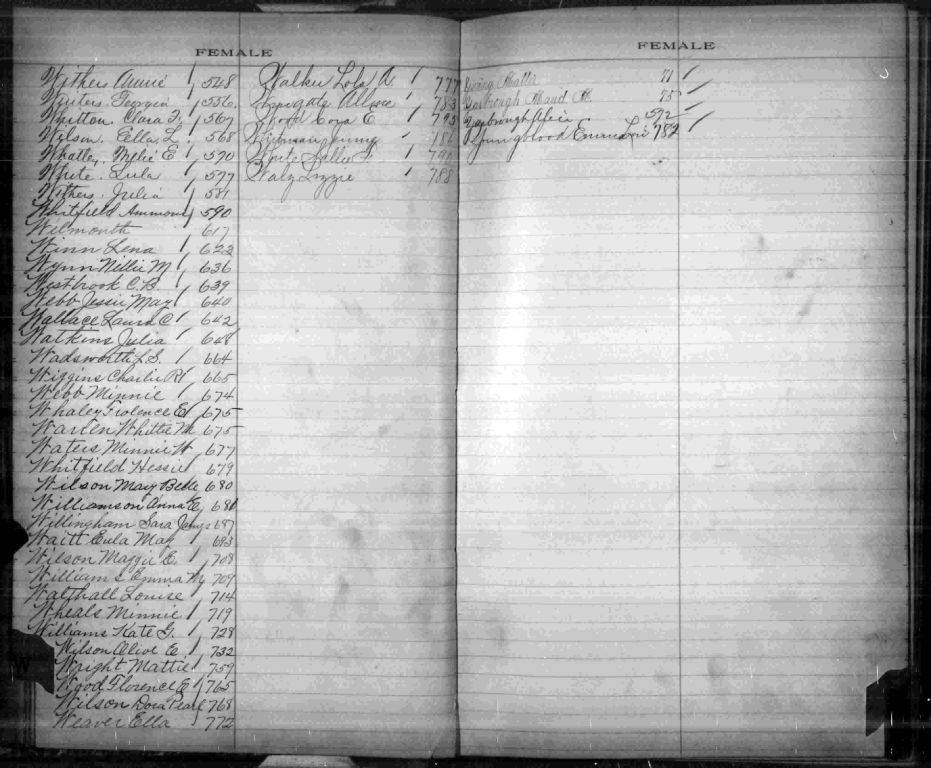 FEMALE
Withers Annie 548
Winters. Georgia 556
Whitton. Clara F. 567
Wilson. Ella L. 568
Whatley, Nelie E 570
White. Lula 577
Withers. Julia 581
Whitfield Ammons 590
Wilmouth 617
Winn Lena 623
Wynn Nellie M 636
Westbrook C.B. 639
Webb Jessie May 640
Wallace Laura C 642
Watkins Julia 648
Wadsworth L.S. 664
Wiggins Charlie R 665
Webb Minnie 674
Whaley Frolence E 675
Warlen Whittie M 675
Waters Minnie W 677
Whitfield Hessie 679
Wilson May Belle 680
Williamson Anna E 681
Willingham Sara 687
Waitt Eula May 693
Wilson Maggie E. 708
Williams Emma M 709
Walthall Louise 714
Wheals Minnie 719
Williams Kate G. 728
Wilson Olive E 732
Wright Mattie 759
Wood Florence E 765
Wilson Dora Pearl 768
Weaver Ella 772
Walker Lola A. 777
Wingate Allice 783
Wood Cora E 793
186
Sallie
Lizzie 788
FEMALE
71
Yarbrough Maud M. 75
Yarbrough 592
Youngblood Emma 782